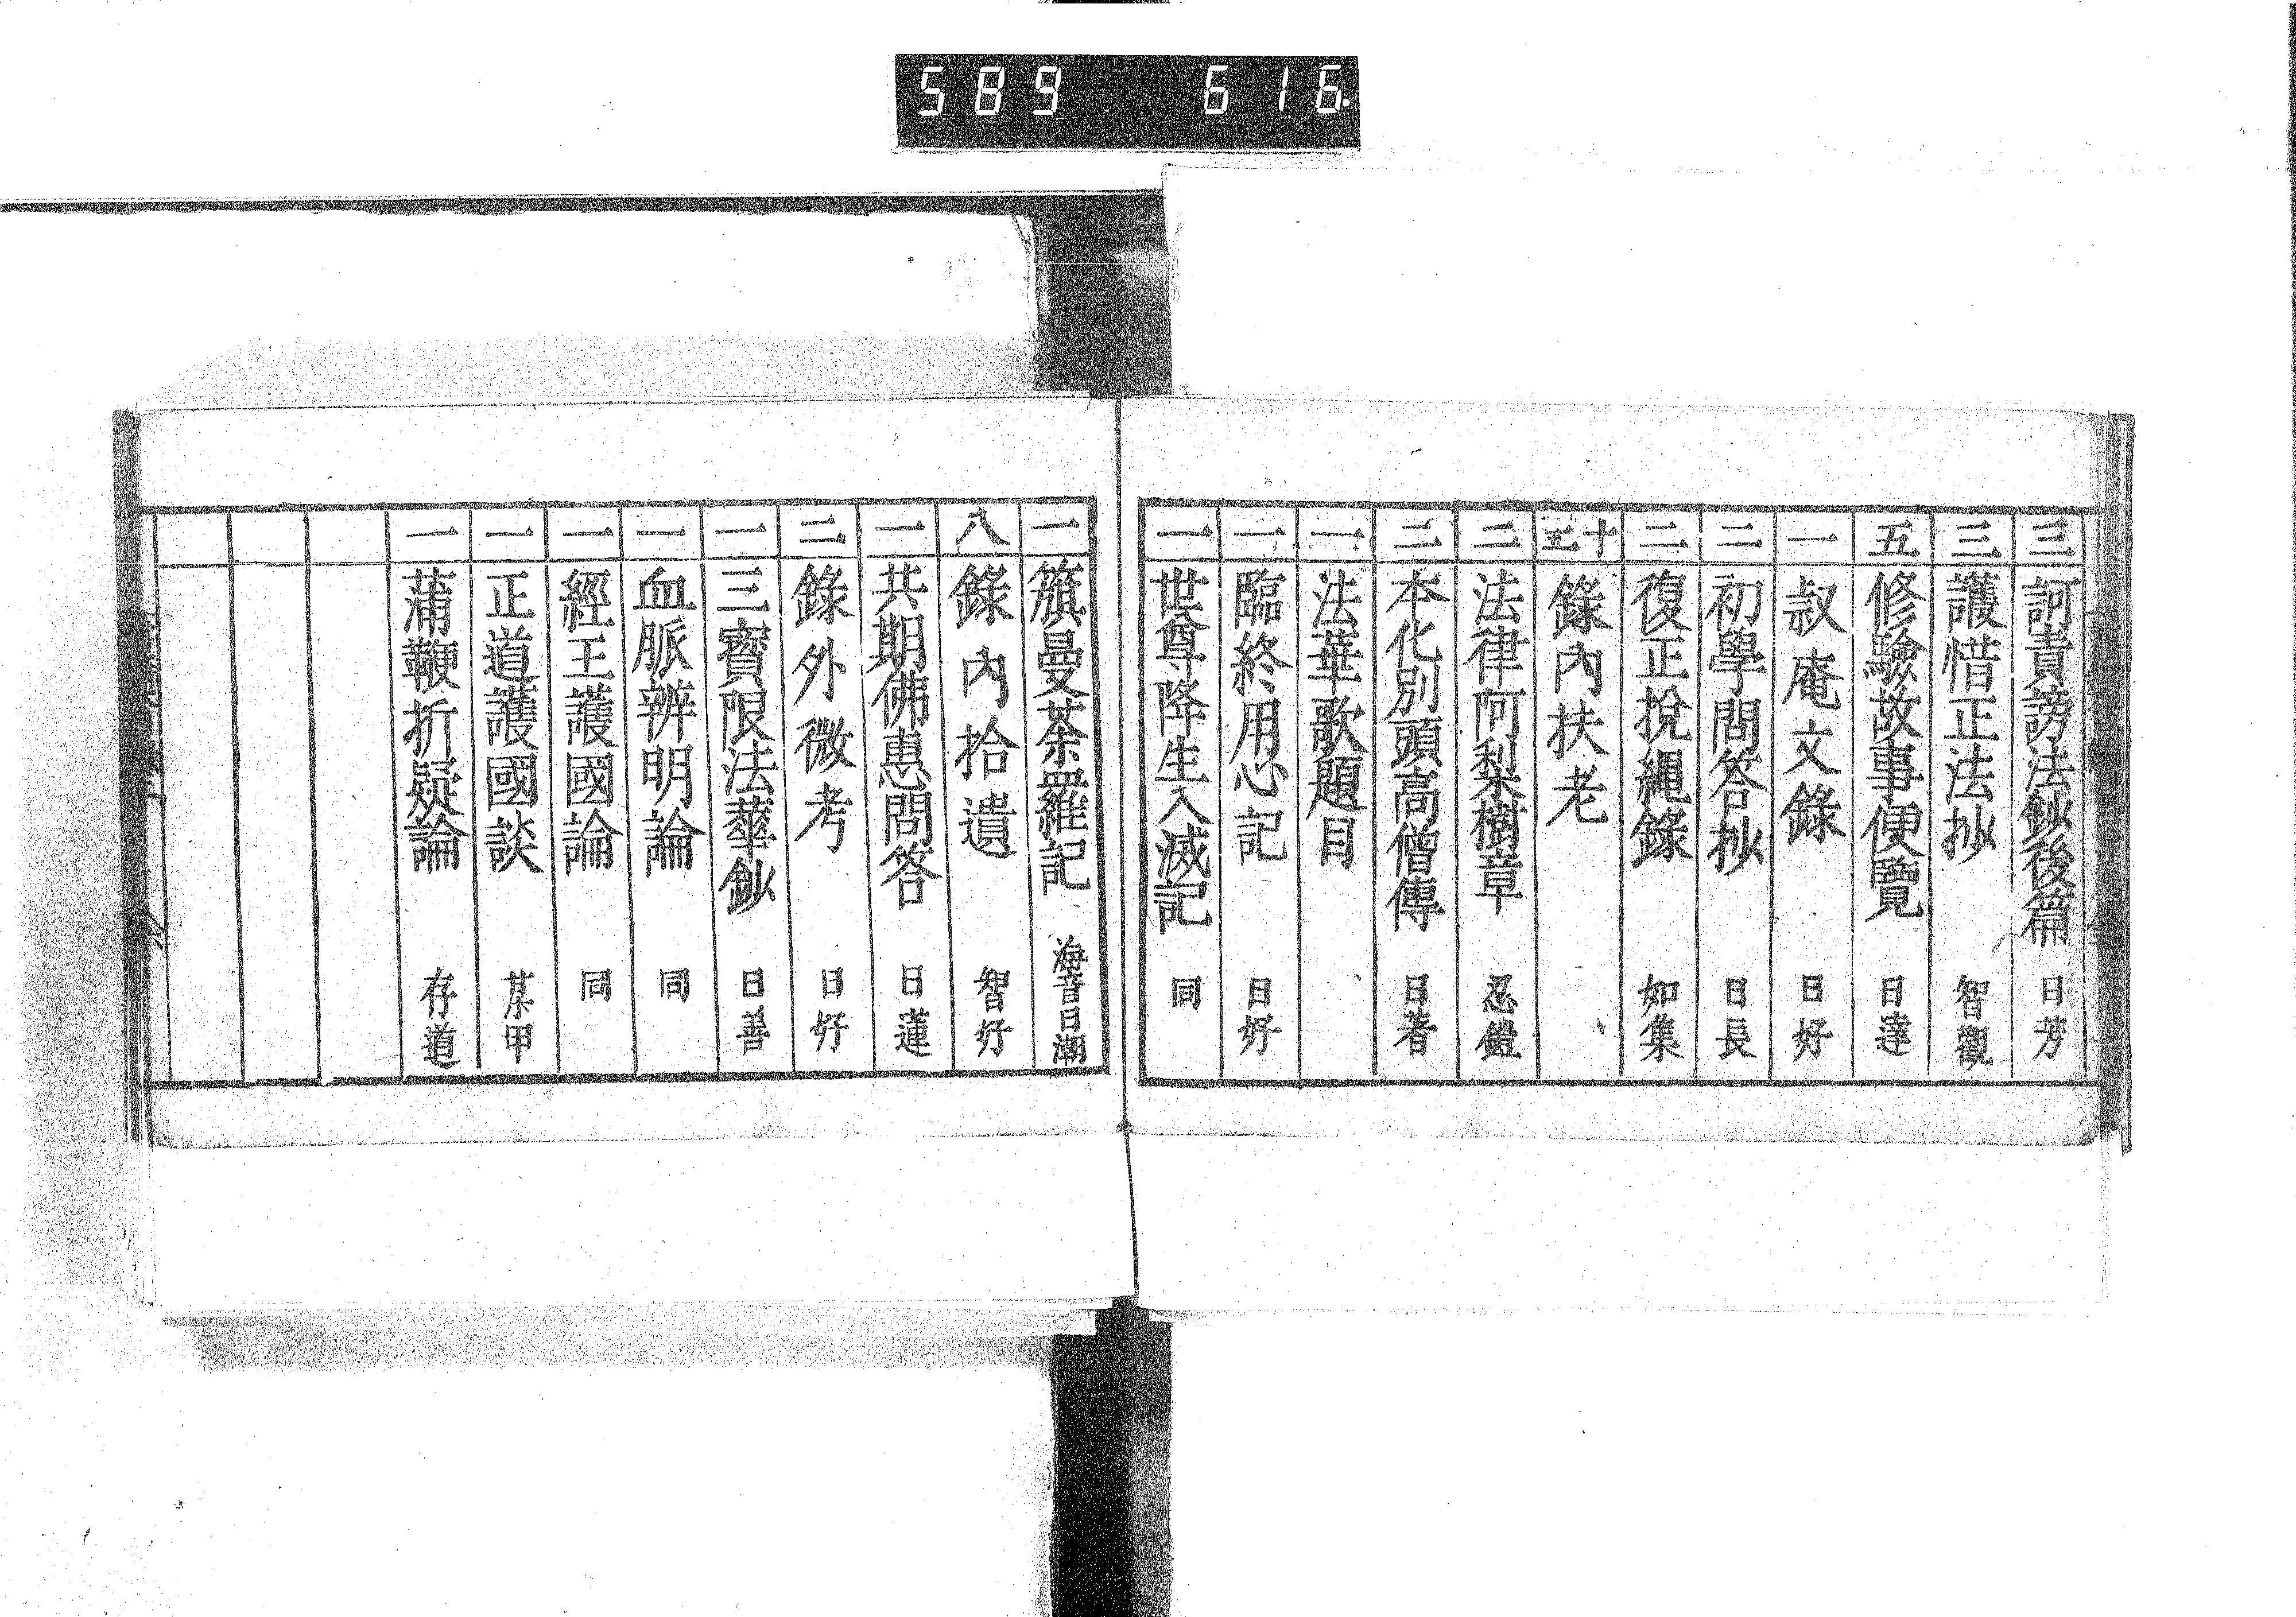 589 616.
三 訶責謗法鈔後篇 日芳
三 護惜正法抄 智觀
五 修驗故事便覽 日達
一 叔庵文錄 日好
二 初學問答抄 日長
二 復正捝繩錄 如集
十五 錄內扶老
二 法律阿梨樹章 忍鎧
二 本化別頭高僧傳 日著
一 法華歌題目
一 臨終用心記 日好
一 世尊降生入滅記 同
一 籏曼荼羅記 海音日潮
八 錄內拾遺 智好
一 共期佛惠問答 日蓮
二 錄外微考 日好
一 三寶限法華鈔 日善
一 血脈辨明論 同
一 經王護國論 同
一 正道護國談 某甲
一 蒲鞭折疑論 存道